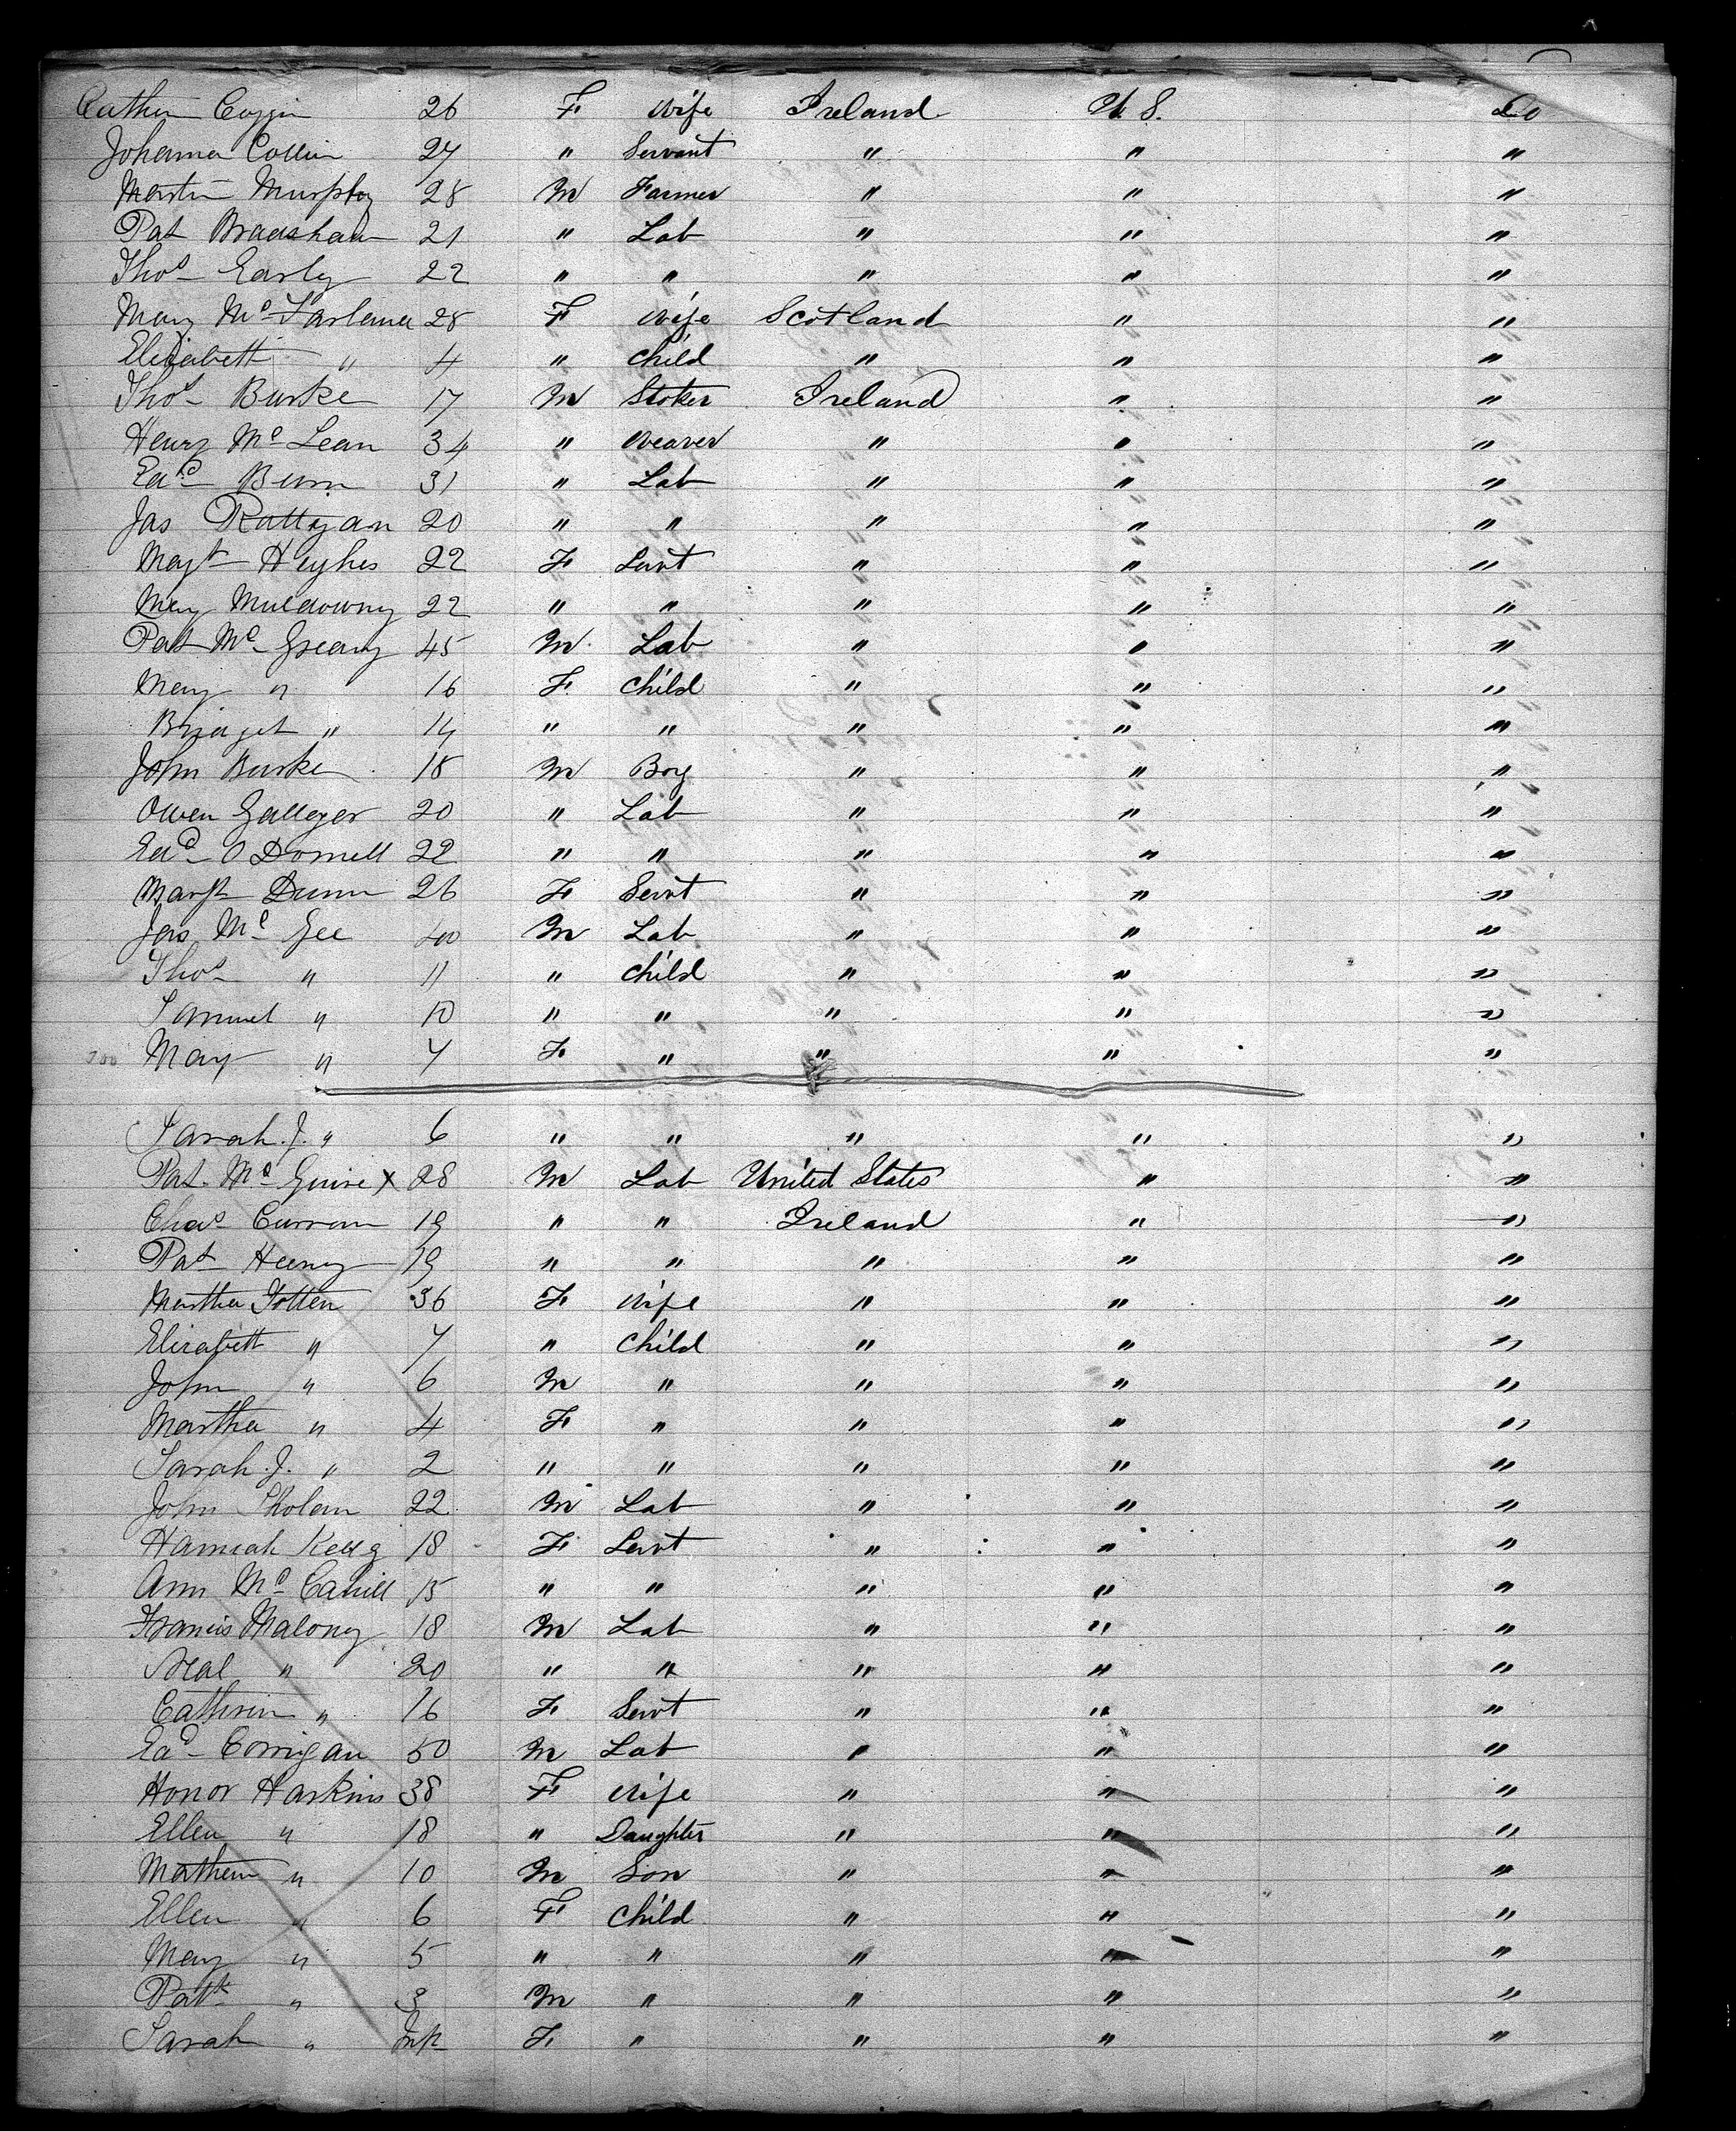 Cathern Coggin 26 F Wife Ireland U.S. Do
Johanna Collin 27 " Servant " " "
Martin Murphy 28 M Farmer " " "
Pat Bradshaw 21 " Lab " " "
Thos Early 22 " " " " "
Mary McFarlane 28 F Wife Scotland " "
Elizabeth " 4 " Child " " "
Thos Burke 17 M Stoker Ireland " "
Henry McLean 34 " Weaver " " "
Ed Burn 31 " Lab " " "
Jas Rattigan 20 " " " " "
Magt Hughes 22 F Servt " " "
Mary Muldowny 22 " " " " "
Pat McGreavy 45 M Lab " " "
Mary " 16 F Child " " "
Bridget " 14 " " " " "
John Burke 18 M Boy " " "
Owen Galleger 20 " Lab " " "
Ed O Donnell 22 " " " " "
Margt Dunn 26 F Servt " " "
Jas McGee 40 M Lab " " "
Thos " 11 " Child " " "
Samuel " 10 " " " " "
Mary " 7 F " " " "
Sarah J. " 6 " " " " "
Pat McGuire x 28 M Lab United States " "
Chas Curran 19 " " Ireland " "
Pat Heeny 19 " " " " "
Martha Totten 36 F Wife " " "
Elizabeth " 7 " Child " " "
John " 6 M " " " "
Martha " 4 F " " " "
Sarah J. " 2 " " " " "
John 22 M Lab " " "
Hannah Kelly 18 F Servt " " "
Ann McCahill 15 " " " " "
Francis Malony 18 M Lab " " "
Neal " 20 " " " " "
Cathrin " 16 F Servt " " "
Ed Corrigan 50 M Lab " " "
Honor Harkins 38 F Wife " " "
Ellen " 18 " Daughter " " "
Mathew " 10 M Son " " "
Ellen " 6 F Child " " "
Mary " 5 " " " " "
Patk " 3 M " " " "
Sarah " Inft F " " " "